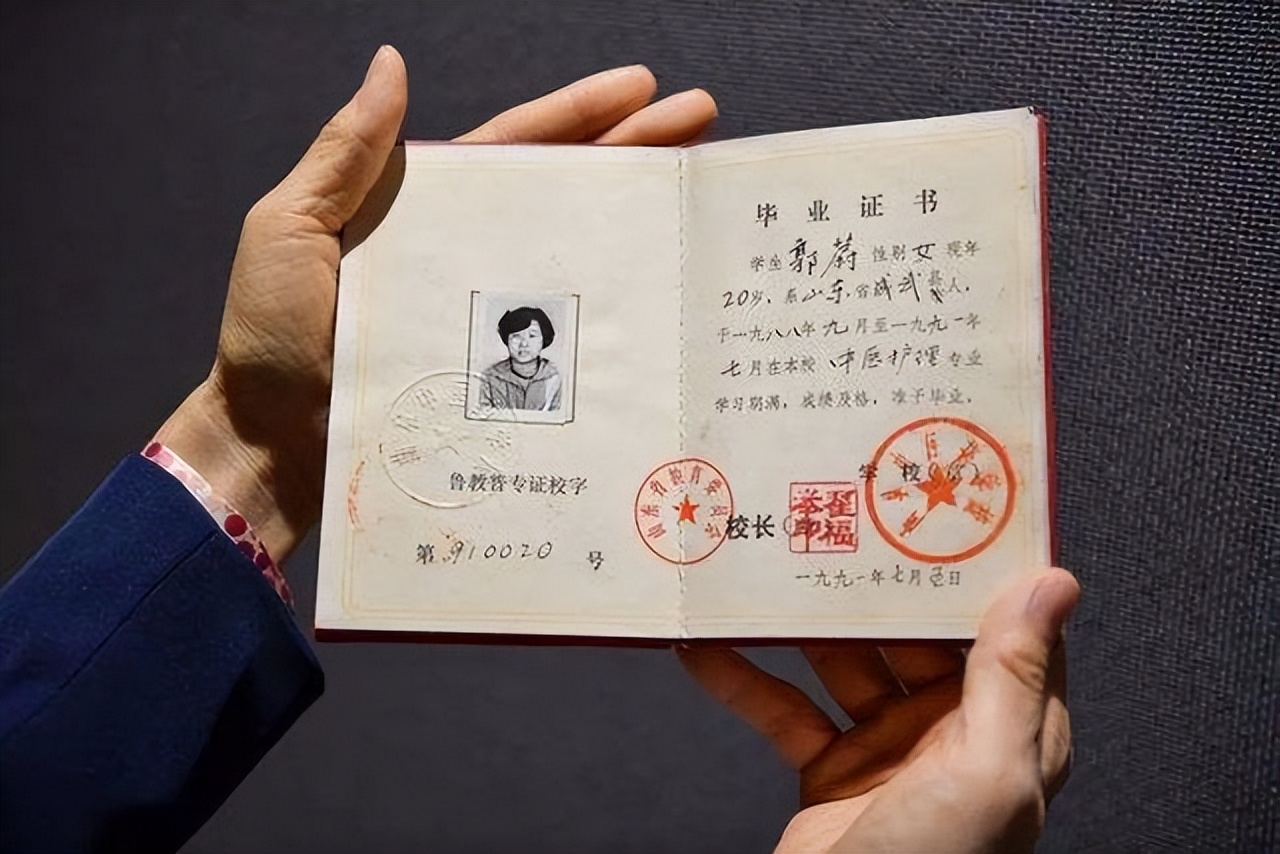 鲁教普专证校字
第910020号
毕业证书
学生郭蔚性别女现年
20岁，系山东省成武县人，
于一九八八年九月至一九九一年
七月在本校中医护理专业
学习期满，成绩及格，准予毕业。
山东省教育委员会
学校
校长
翟福举印
一九九一年七月五日